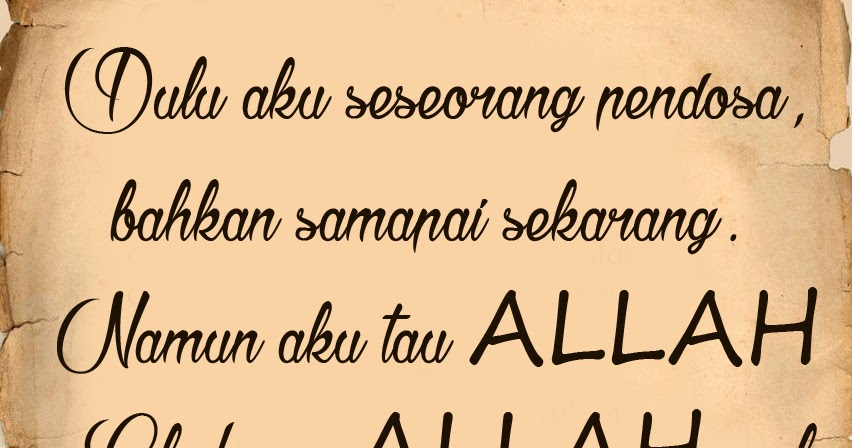 Dulu aku seseorang pendosa,
bahkan samapai sekarang.
Namun aku tau ALLAH
ALLAH